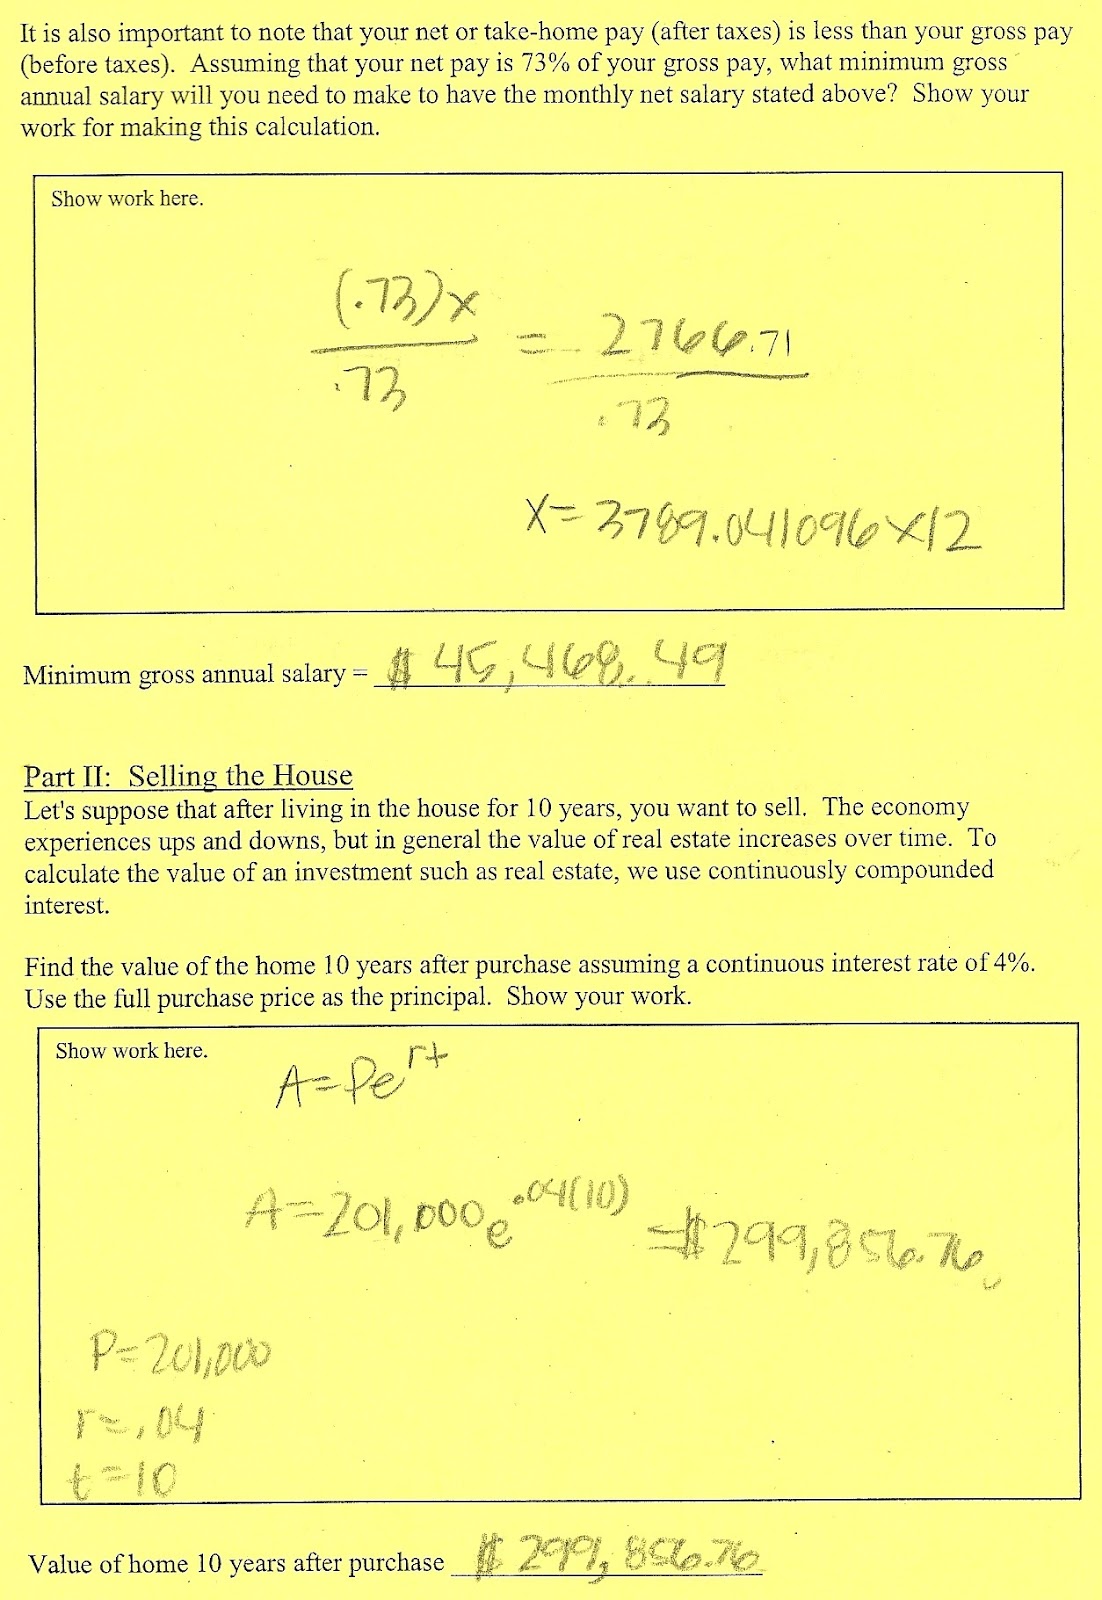 It is also important to note that your net or take-home pay (after taxes) is less than your gross pay
(before taxes). Assuming that your net pay is 73% of your gross pay, what minimum gross
annual salary will you need to make to have the monthly net salary stated above? Show your
work for making this calculation.
Show work here.
(.73)x
.73
= 2766.71
.73
X=3789.041096x12
Minimum gross annual salary = $ 45,468.49
Part II: Selling the House
Let's suppose that after living in the house for 10 years, you want to sell. The economy
experiences ups and downs, but in general the value of real estate increases over time. To
calculate the value of an investment such as real estate, we use continuously compounded
interest.
Find the value of the home 10 years after purchase assuming a continuous interest rate of 4%.
Use the full purchase price as the principal. Show your work.
Show work here.
A=Pe^rt
A=201,000e^.04(10) =$299,856.76
P=201,000
r=.04
t=10
Value of home 10 years after purchase $ 299,856.76